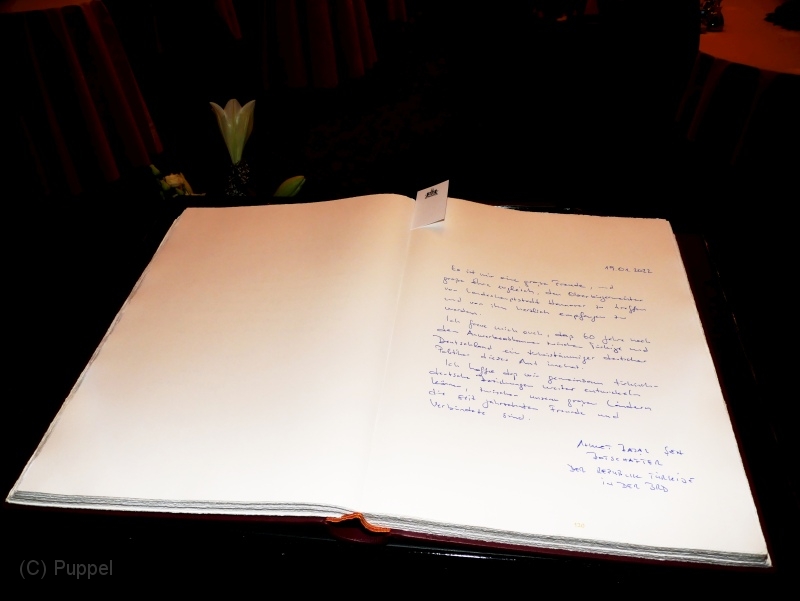 19.01.2022
Es ist mir eine große Freude, und
große Ehre zugleich, den Oberbürgermeister
von Landeshauptstadt Hannover zu treffen
und von ihm herzlich empfangen zu
werden.
Ich freue mich auch, dap 60 Jahre nach
dem Anwerbeabkommen zwischen Türkiye und
Deutschland ein türkischstämmiger deutscher
Politiker dieses Amt inehat.
Ich hoffe dap wir gemeinsam türkisch-
deutsche Beziehungen weiter entwickeln
können, zwischen unseren großen Ländern
die seit jahrzehnten Freunde und
Verbündete sind.
AHMET BAŞAR ŞEN
BOTSCHAFTER
DER REPUBLIK TÜRKIYE
IN DER BRD
(C) Puppel